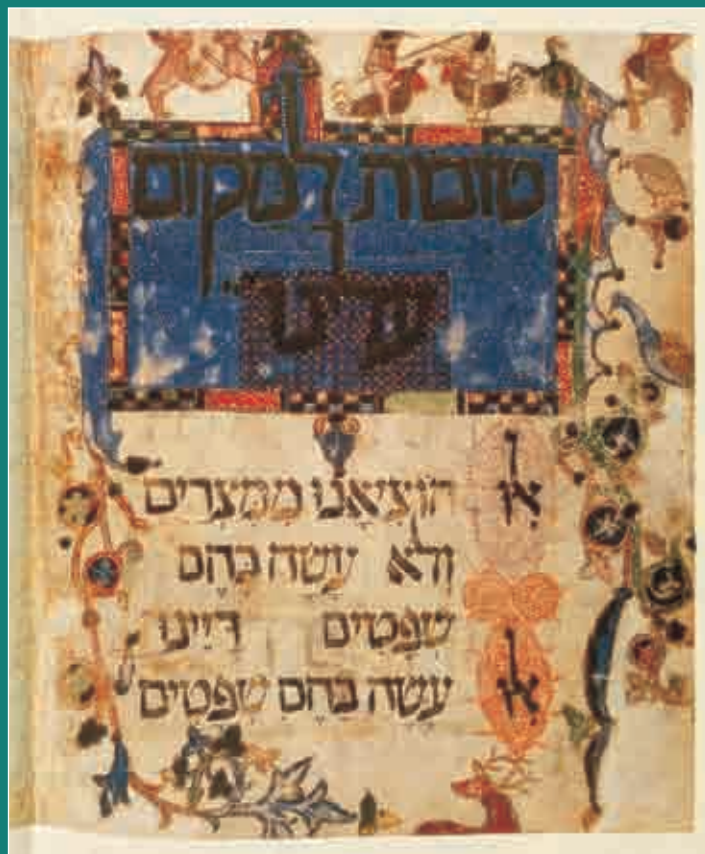 טובות למקום
עלינו
אִלּוּ הוֹצִיאָנוּ מִמִּצְרַיִם
וְלֹא עָשָׂה בָהֶם
שְׁפָטִים דַּיֵּינוּ
אִלּוּ עָשָׂה בָהֶם שְׁפָטִים